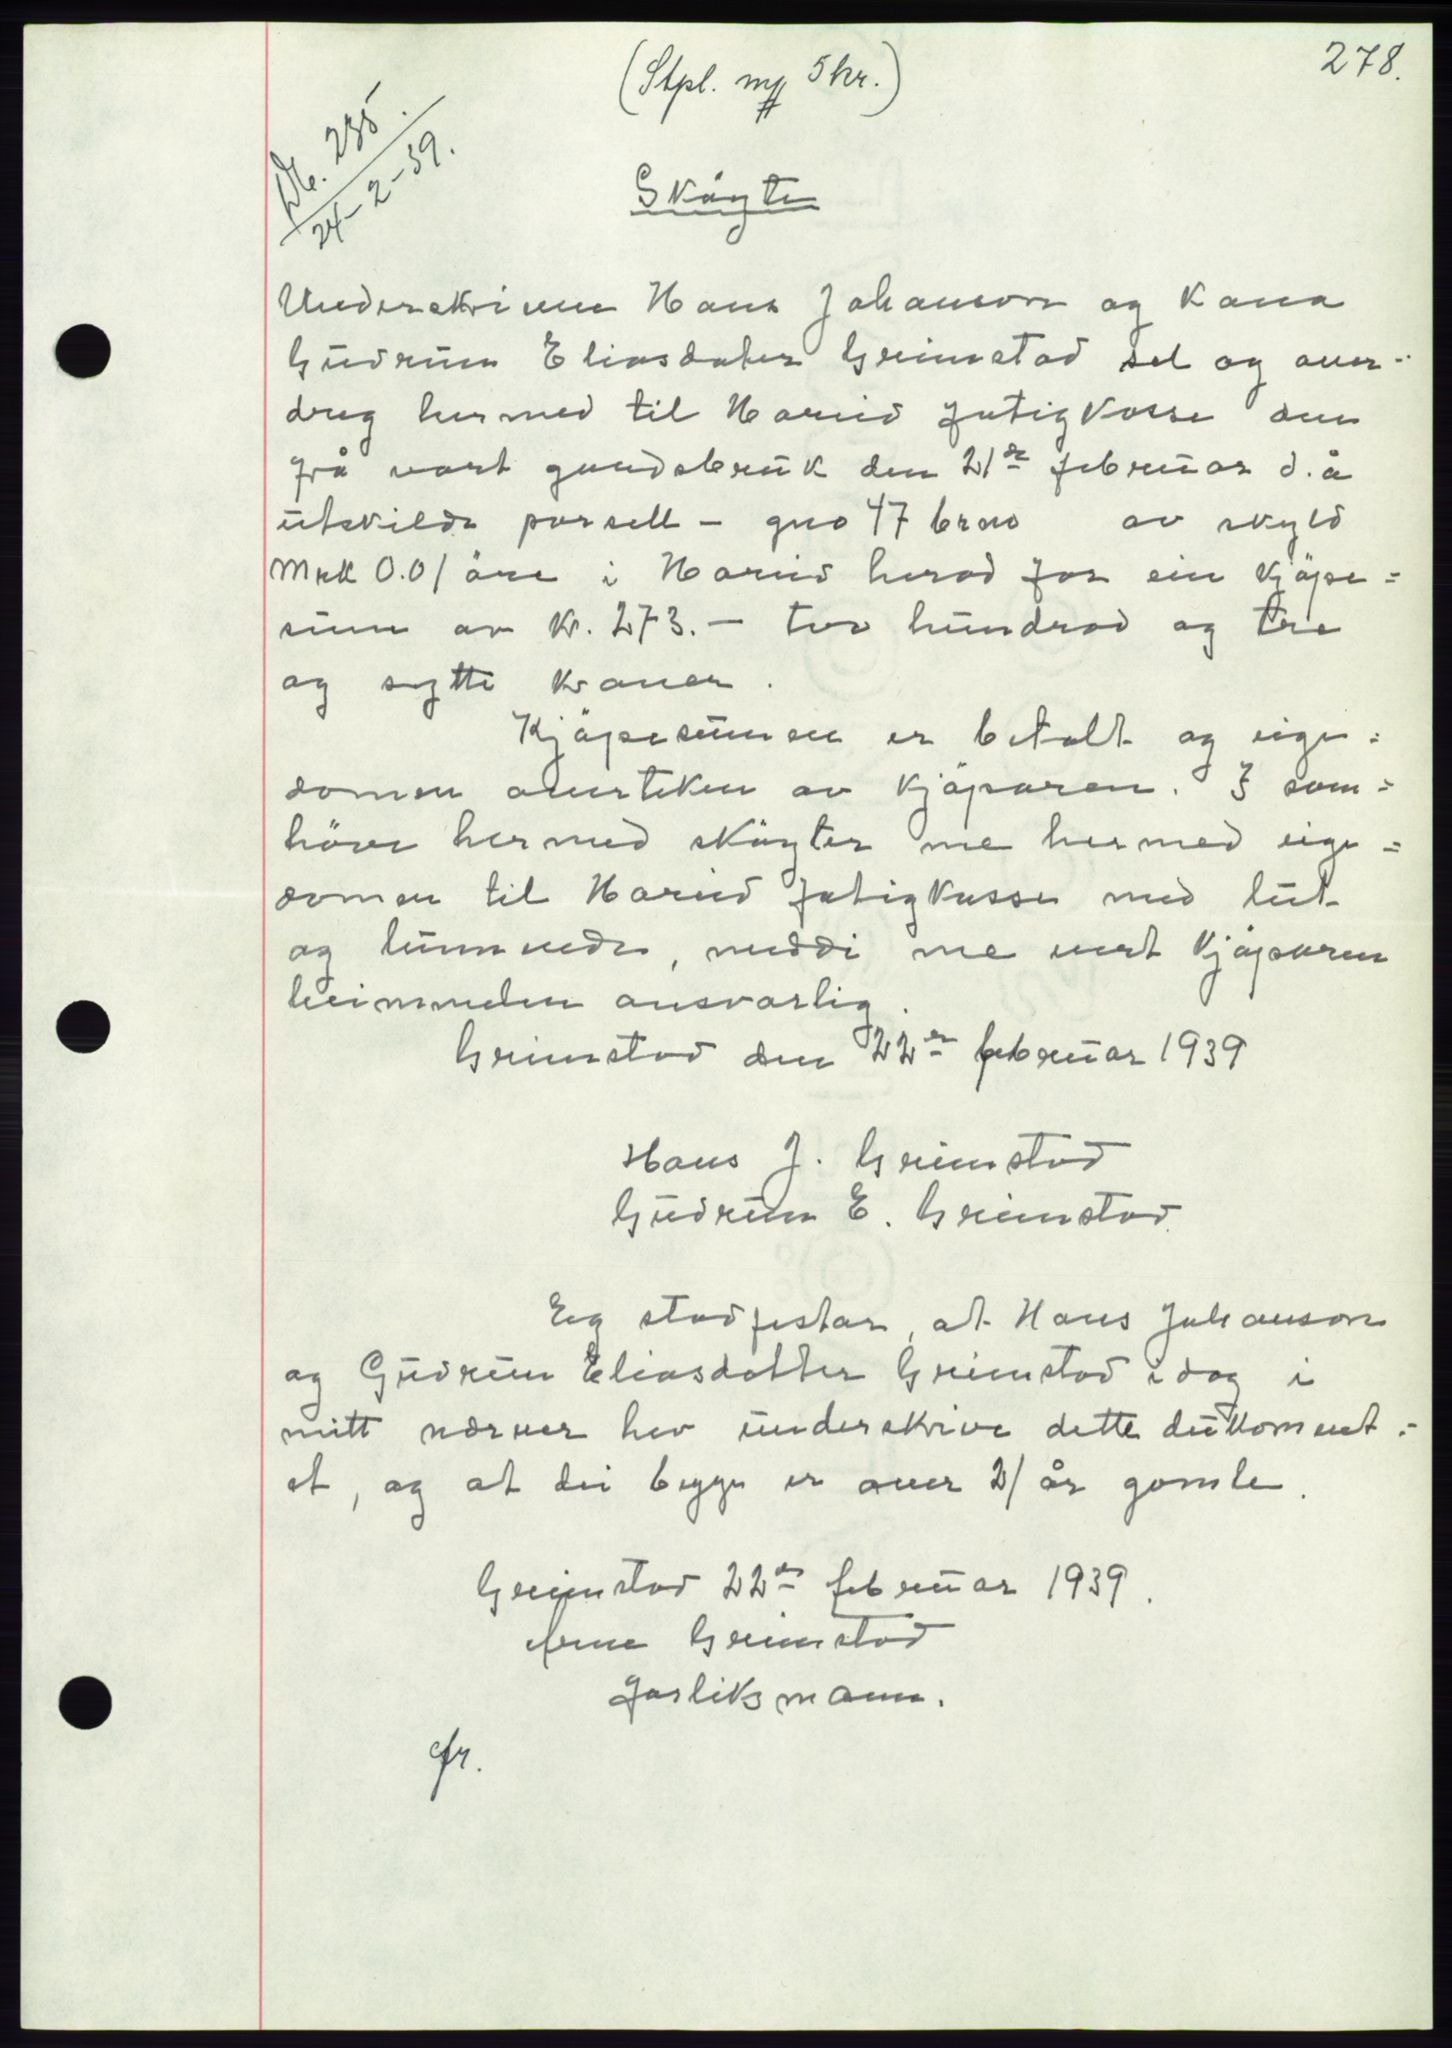 278.
(Stpl. m/ 5 kr.)
Nr. 235.
24-2-39.
Skøyte
Underskrivne Hans Johanson og Kona
Gudrun Eliasdater Grimstad sel og over-
dreg hermed til Hareid fatigkasse den
frå vart gardsbruk den 21de februar d.å
utskilde parsell - gno 47 brno av skyld
Mrk 0.01 øre i Hareid herad for ein kjøpe=
sum av kr. 273.- tvo hundrad og tre
og sytti kroner.
Kjøpesummen er betalt og eige=
domen overteken av kjøparen. I sam=
høve hermed skøyter me hermed eige=
domen til Hareid fatigkasse med lut
og lunnende, meddi me vert kjøparen
heimmelen ansvarlig.
Grimstad den 22de februar 1939
Hans J. Grimstad
Gudrun E. Grimstad.
Eg stadfestar, at Hans Johanson
og Gudrun Eliasdotter Grimstad idag i
mitt nærver hev underskrive dette dukoment-
et, og at dei begge er over 21 år gamle.
Grimstad 22de februar 1939.
Arne Grimstad
forliksmann.